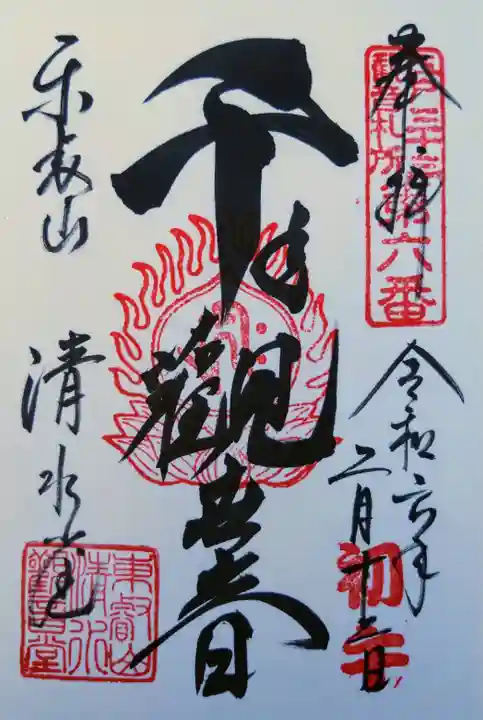 奉拝
江戸三十三
観音札所第六番
令和六年
二月十二日
初午
千手觀世音
東叡山
清水堂
東叡山
清水
觀音堂